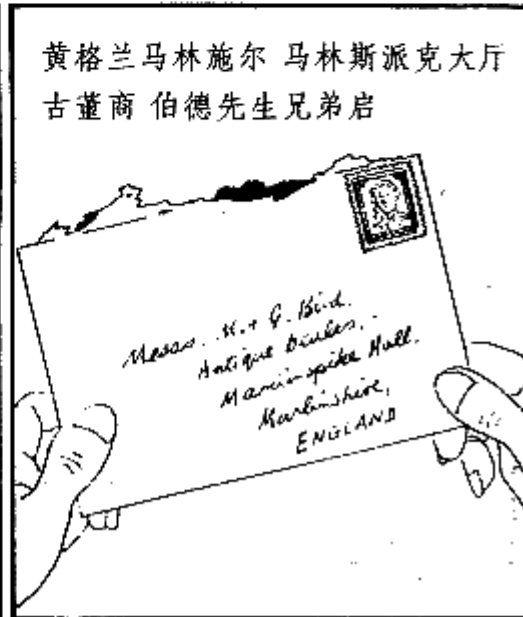 黄格兰马林施尔 马林斯派克大厅
古董商 伯德先生兄弟启
Messrs. M. + G. Bird.
Antique Dealers,
Marlinspike Hall,
Marlinshire,
ENGLAND